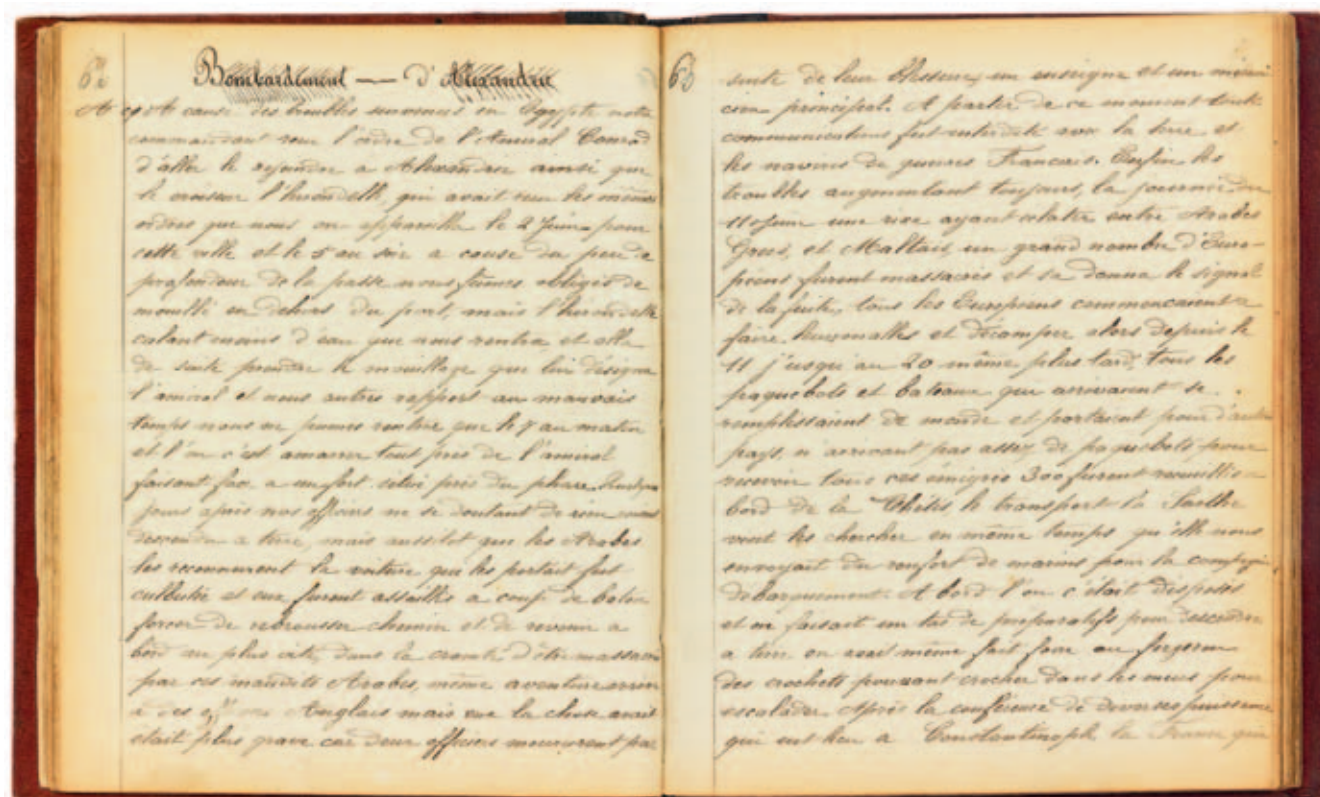 62
Bombardement — d'Alexandrie
A cause des troubles survenus en Egypte notre
commandant reçu l'ordre de l'Amiral Conrad
d'aller le rejoindre a Alexandrie ainsi que
le croiseur l'hirondelle, qui avait reçu les mêmes
ordres que nous on appareilla le 2 Juin pour
cette ville et le 5 au soir a cause du peu de
profondeur de la passe nous fûmes obligés de
mouillé en dehors du port, mais l'hirondelle
calant moins d'eau que nous rentra, et alla
de suite prendre le mouillage que lui désigna
l'amiral et nous autres rapport au mauvais
temps nous ne pumes rentrer que le 7 au matin
et l'on c'est amarré tout près de l'amiral
faisant face a un fort situé près du phare. Quelques
jours après nos officiers ne se doutant de rien
descendu a terre, mais aussitot que les Arabes
les reconnurent la voiture qui les portait fut
culbutée et eux furent assaillis a coup de baton
forcer de rebrousser chemin et de revenir a
bord au plus vite, dans la crainte d'être massacré
par ces maudits Arabes, même aventure arriva
a des Anglais mais eux la chose avait
était plus grave car deux officiers moururent par
63
suite de leur blessure, un enseigne et un
principal. A partir de ce moment toute
communications fut interdite avec la terre et
les navires de guerres Français. Enfin les
troubles augmentant toujours, la journée du
11 Juin une rixe ayant éclater entre Arabes
Grecs, et Maltais, un grand nombre d'Euro-
péens furent massacrés et sa donna le signal
de la fuite, tous les Européens commencaient a
faire leurs malles et décamper alors depuis le
11 j'usqu'au 20 même plus tard, tous les
paquebots et bateaux qui arrivaient se
remplissaient de monde et partaient pour d'autre
pays, n'arrivant pas assez de paquebots pour
recevoir tous ces émigrés 300 furent recueillis
bord de la Thétis, le transport la Sarthe
vint les chercher en même temps qu'elle nous
envoyait du renfort de marins pour la compagnie
débarquement. A bord l'on c'était disposés
et on faisait un tas de préparatifs pour descendre
a terre on avait même fait faire au forgeron
des crochets pouvant crocher dans les murs pour
escalader. Après la conférence de diverses puissance
qui eut lieu a Constantinople, la France qui